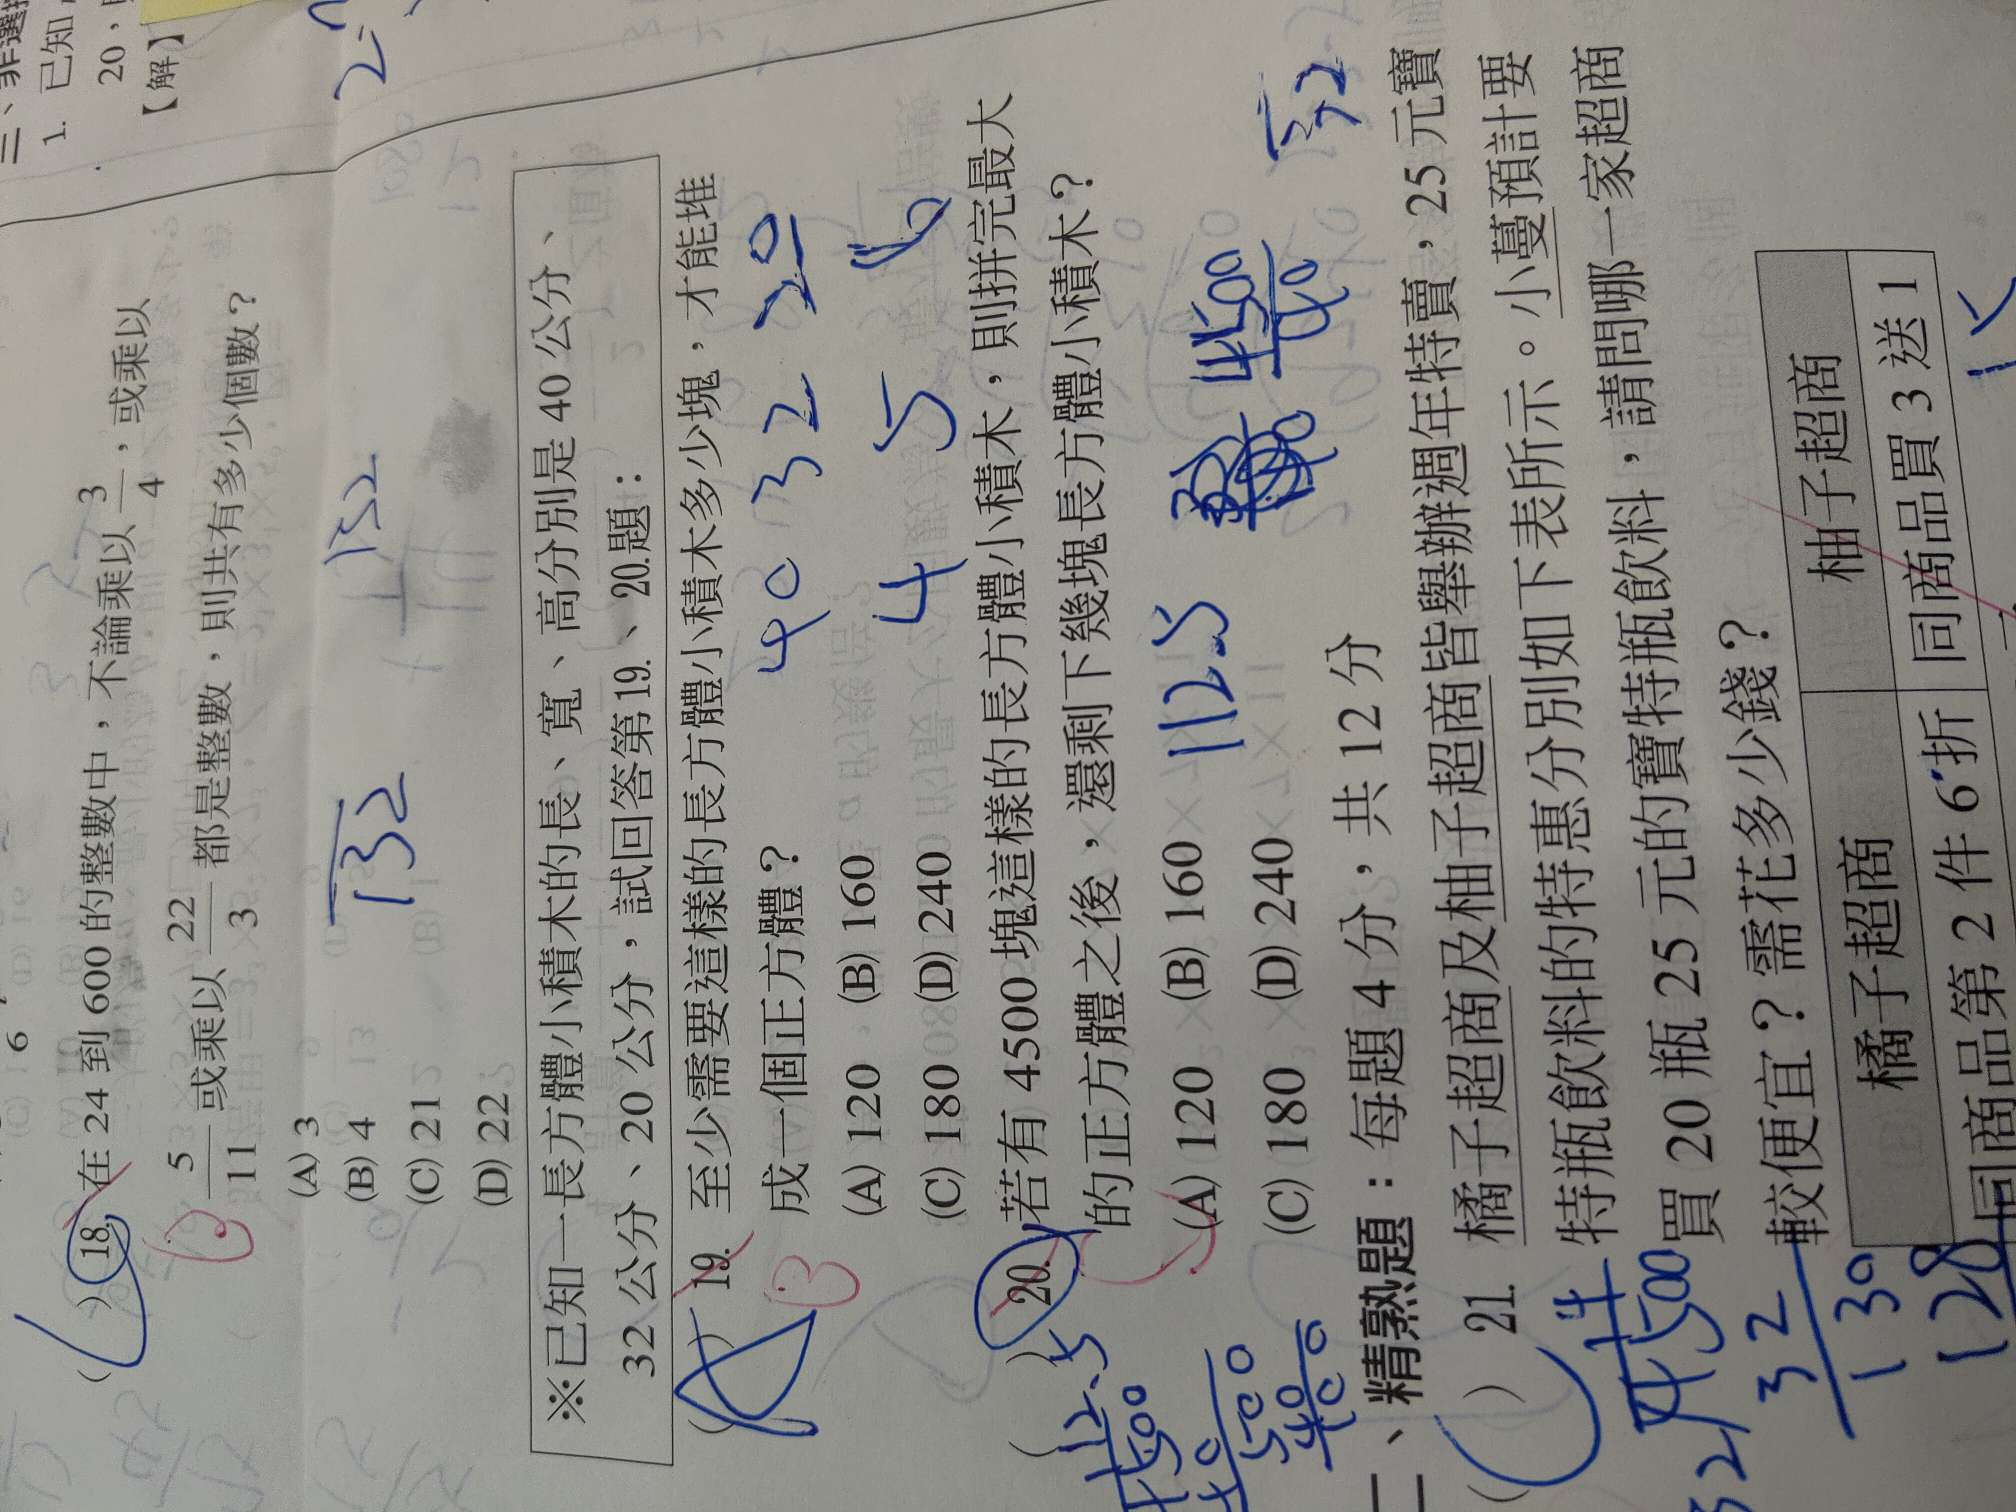 三、非選擇
1. 已知
20，
【解】
( ) 18. 在 24 到 600 的整數中，不論乘以 3/4，或乘以
5/11 或乘以 22/3 都是整數，則共有多少個數？
(A) 3
(B) 4
(C) 21
(D) 22
132
132
※已知一長方體小積木的長、寬、高分別是 40 公分、
32 公分、20 公分，試回答第 19.、20.題：
( ) 19. 至少需要這樣的長方體小積木多少塊，才能堆
成一個正方體？
(A) 120 (B) 160
(C) 180 (D) 240
40 32 20
4 5
( ) 20. 若有 4500 塊這樣的長方體小積木，則拼完最大
的正方體之後，還剩下幾塊長方體小積木？
(A) 120 (B) 160
(C) 180 (D) 240
1125
4500
40
132
112.5
4500
40
500
40
100
二、精熟題：每題 4 分，共 12 分
( ) 21. 橘子超商及柚子超商皆舉辦週年特賣，25 元寶
特瓶飲料的特惠分別如下表所示。小蔓預計要
買 20 瓶 25 元的寶特瓶飲料，請問哪一家超商
較便宜？需花多少錢？
橘子超商 柚子超商
同商品第 2 件 6 折 同商品買 3 送 1
14
32
4500
32
130
128